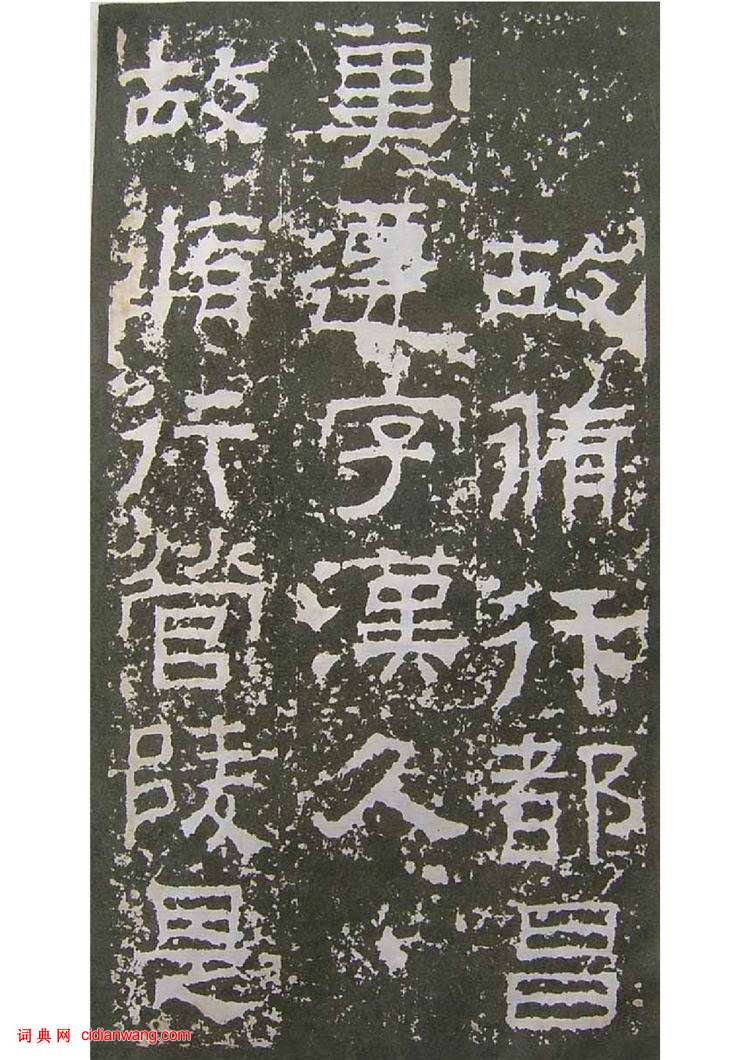 故脩行都昌
冀遷字漢久
故脩行營陵是
词典网 cidianwang.com